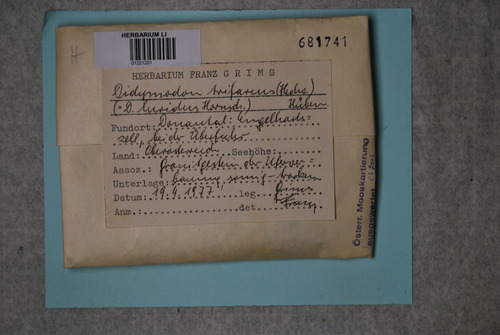 HERBARIUM LI
681741
HERBARIUM FRANZ GRIMS
Didymodon trifarius (Hedw.)
(= D. luridus Hornsch.) Hüben.
Fundort: Donautal: Engelharts-
zell, bei der Überfuhr
Land: Oberösterreich Seehöhe:
Assoz.: Granitgestein der Ufer
Unterlage: sonnig-trocken
Datum: 19.4.1977 leg. Grims
Anm.: det. Franz
Österr. Mooskartierung
ausgewertet